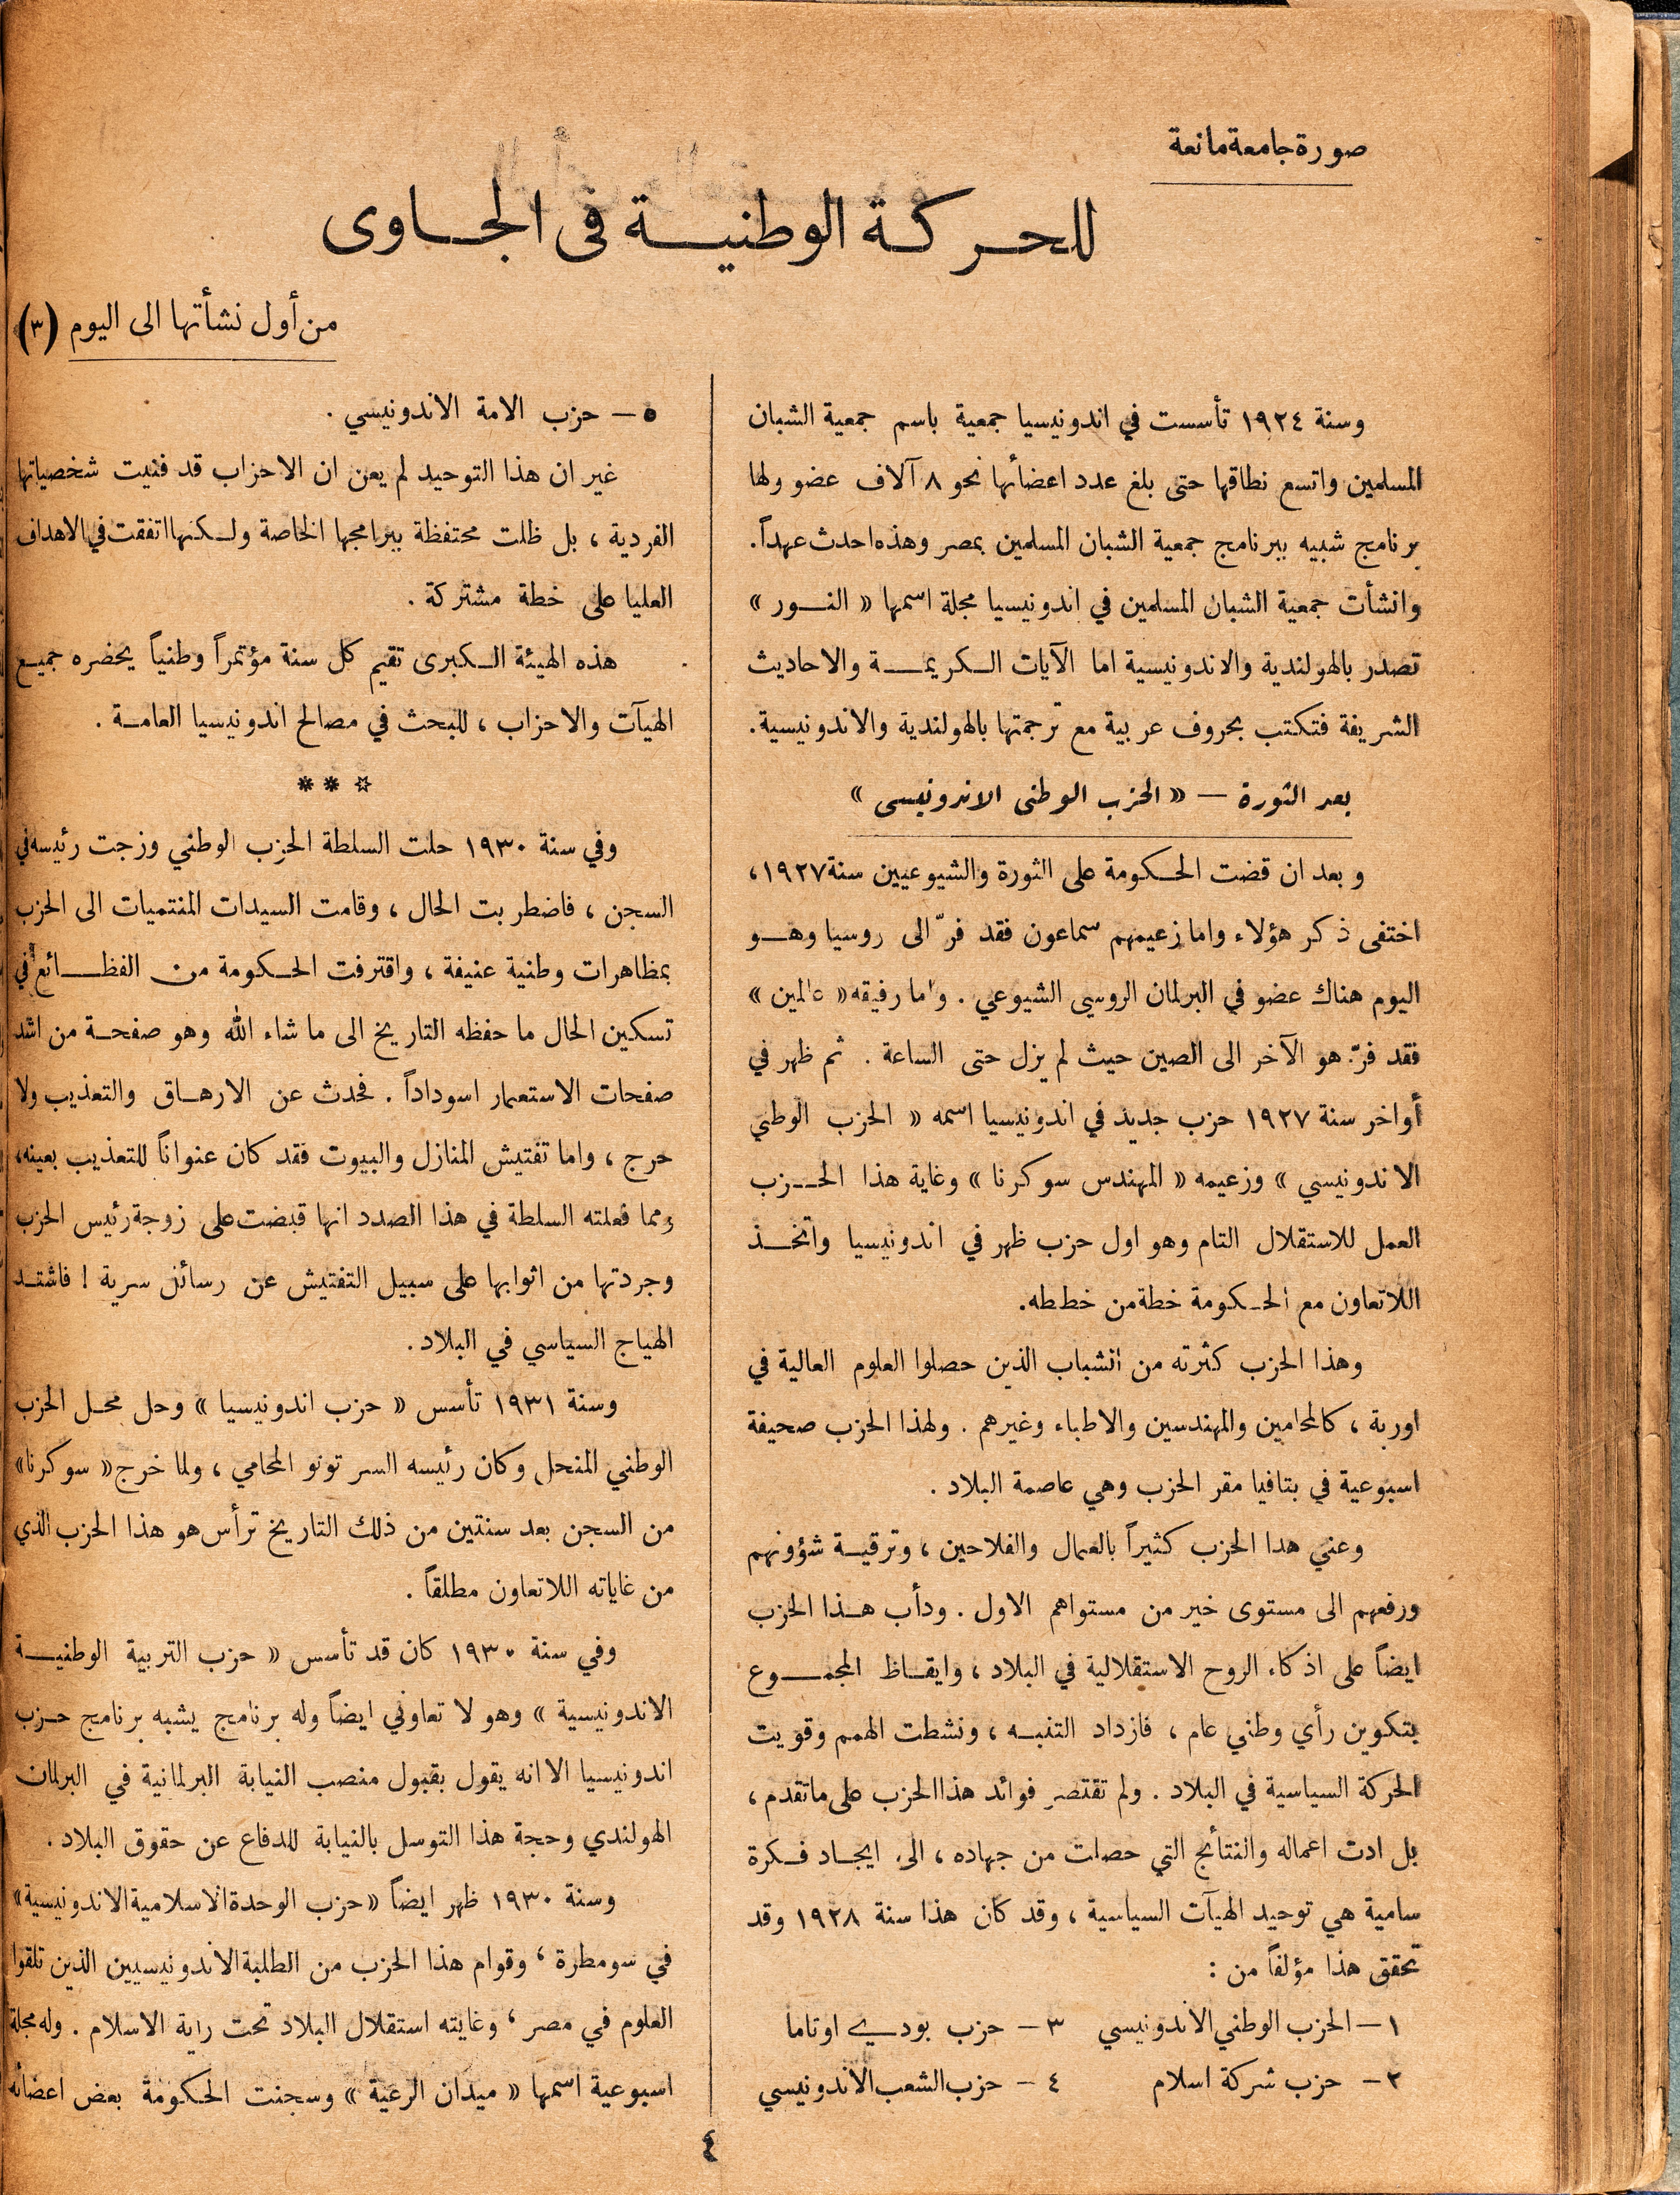 صورة جامعة مانعة
للحركة الوطنية في الجاوى
من أول نشأتها الى اليوم (٣)
وسنة ١٩٢٤ تأسست في اندونيسيا جمعية باسم جمعية الشبان
المسلمين واتسع نطاقها حتى بلغ عدد اعضائها نحو ٨ آلاف عضو ولها
برنامج شبيه ببرنامج جمعية الشبان المسلمين بمصر وهذه احدث عهداً.
وانشأت جمعية الشبان المسلمين في اندونيسيا مجلة اسمها « النور »
تصدر بالهولندية والاندونيسية اما الآيات الكريمة والاحاديث
الشريفة فتكتب بحروف عربية مع ترجمتها بالهولندية والاندونيسية.
بعد الثورة — « الحزب الوطني الاندونيسي »
وبعد ان قضت الحكومة على الثورة والشيوعيين سنة ١٩٢٧،
اختفى ذكر هؤلاء واما زعيمهم سماعون فقد فرّ الى روسيا وهو
اليوم هناك عضو في البرلمان الروسي الشيوعي . واما رفيقه
فقد فرّ هو الآخر الى الصين حيث لم يزل حتى الساعة . ثم ظهر في
أواخر سنة ١٩٢٧ حزب جديد في اندونيسيا اسمه « الحزب الوطني
الاندونيسي » وزعيمه « المهندس سوكرنا » وغاية هذا الحزب
العمل للاستقلال التام وهو اول حزب ظهر في اندونيسيا واتخذ
اللاتعاون مع الحكومة خطة من خططه.
وهذا الحزب كثرته من الشباب الذين حصلوا العلوم العالية في
اوربة ، كالمحامين والمهندسين والاطباء وغيرهم . ولهذا الحزب صحيفة
اسبوعية في بتافيا مقر الحزب وهي عاصمة البلاد .
وعني هدا الحزب كثيراً بالعمال والفلاحين ، وترقية شؤونهم
ورفعهم الى مستوى خير من مستواهم الاول . ودأب هذا الحزب
ايضاً على اذكاء الروح الاستقلالية في البلاد ، وايقاظ المجموع
بتكوين رأي وطني عام ، فازداد التنبه ، ونشطت الهمم وقويت
الحركة السياسية في البلاد . ولم تقتصر فوائد هذا الحزب على ما تقدم ،
بل ادت اعماله والنتائج التي حصلت من جهاده ، الى ايجاد فكرة
سامية هي توحيد الهيآت السياسية ، وقد كان هذا سنة ١٩٢٨ وقد
تحقق هذا مؤلفاً من :
١ — الحزب الوطني الاندونيسي ٣ — حزب بودي اوتاما
٢ — حزب شركة اسلام ٤ — حزب الشعب الاندونيسي
٥ — حزب الامة الاندونيسي .
غير ان هذا التوحيد لم يعن ان الاحزاب قد فنيت شخصياتها
الفردية ، بل ظلت محتفظة ببرامجها الخاصة ولكنها اتفقت في الاهداف
العليا على خطة مشتركة .
هذه الهيئة الكبرى تقيم كل سنة مؤتمراً وطنياً يحضره جميع
الهيآت والاحزاب ، للبحث في مصالح اندونيسيا العامة .
* * *
وفي سنة ١٩٣٠ حلت السلطة الحزب الوطني وزجت رئيسه في
السجن ، فاضطربت الحال ، وقامت السيدات المنتميات الى الحزب
بمظاهرات وطنية عنيفة ، واقترفت الحكومة من الفظائع في
تسكين الحال ما حفظه التاريخ الى ما شاء الله وهو صفحة من اشد
صفحات الاستعمار اسوداداً . فحدث عن الارهاق والتعذيب ولا
حرج ، واما تفتيش المنازل والبيوت فقد كان عنواناً للتعذيب بعينه،
ومما فعلته السلطة في هذا الصدد انها قبضت على زوجة رئيس الحزب
وجردتها من اثوابها على سبيل التفتيش عن رسائل سرية ! فاشتد
الهياج السياسي في البلاد .
وسنة ١٩٣١ تأسس « حزب اندونيسيا » وحل محل الحزب
الوطني المنحل وكان رئيسه السر تونو المحامي ، ولما خرج « سوكرنا»
من السجن بعد سنتين من ذلك التاريخ ترأس هو هذا الحزب الذي
من غاياته اللاتعاون مطلقاً .
وفي سنة ١٩٣٠ كان قد تأسس « حزب التربية الوطنية
الاندونيسية » وهو لا تعاوني ايضاً وله برنامج يشبه برنامج حزب
اندونيسيا الا انه يقول بقبول منصب النيابة البرلمانية في البرلمان
الهولندي وحجة هذا التوسل بالنيابة للدفاع عن حقوق البلاد .
وسنة ١٩٣٠ ظهر ايضاً « حزب الوحدة الاسلامية الاندونيسية»
في سومطرة ، وقوام هذا الحزب من الطلبة الاندونيسيين الذين تلقوا
العلوم في مصر ، وغايته استقلال البلاد تحت راية الاسلام . وله مجلة
اسبوعية اسمها « ميدان الرعية » وسجنت الحكومة بعض اعضائه
٤